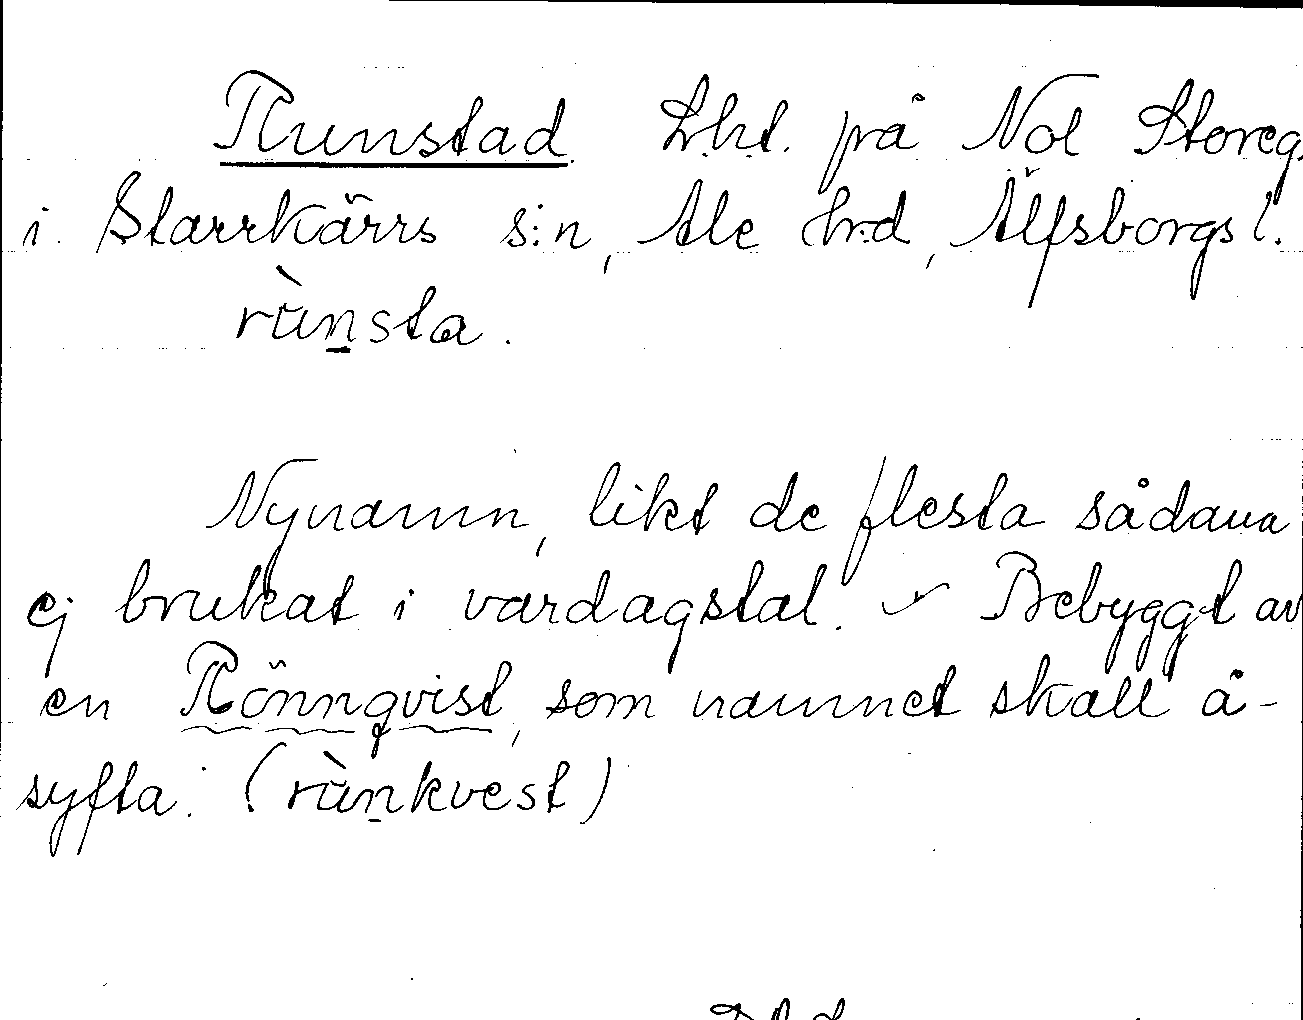 Runstad. Lht. på Nol Storeg.
i Starrkärrs s:n, Ale hrd, Älfsborgs l.
rùnsta.
Nynamn, likt de flesta sådana
ej brukat i vardagstal. Bebyggt av
en Rönnqvist, som namnet skall å-
syfta. (rùnkvest)